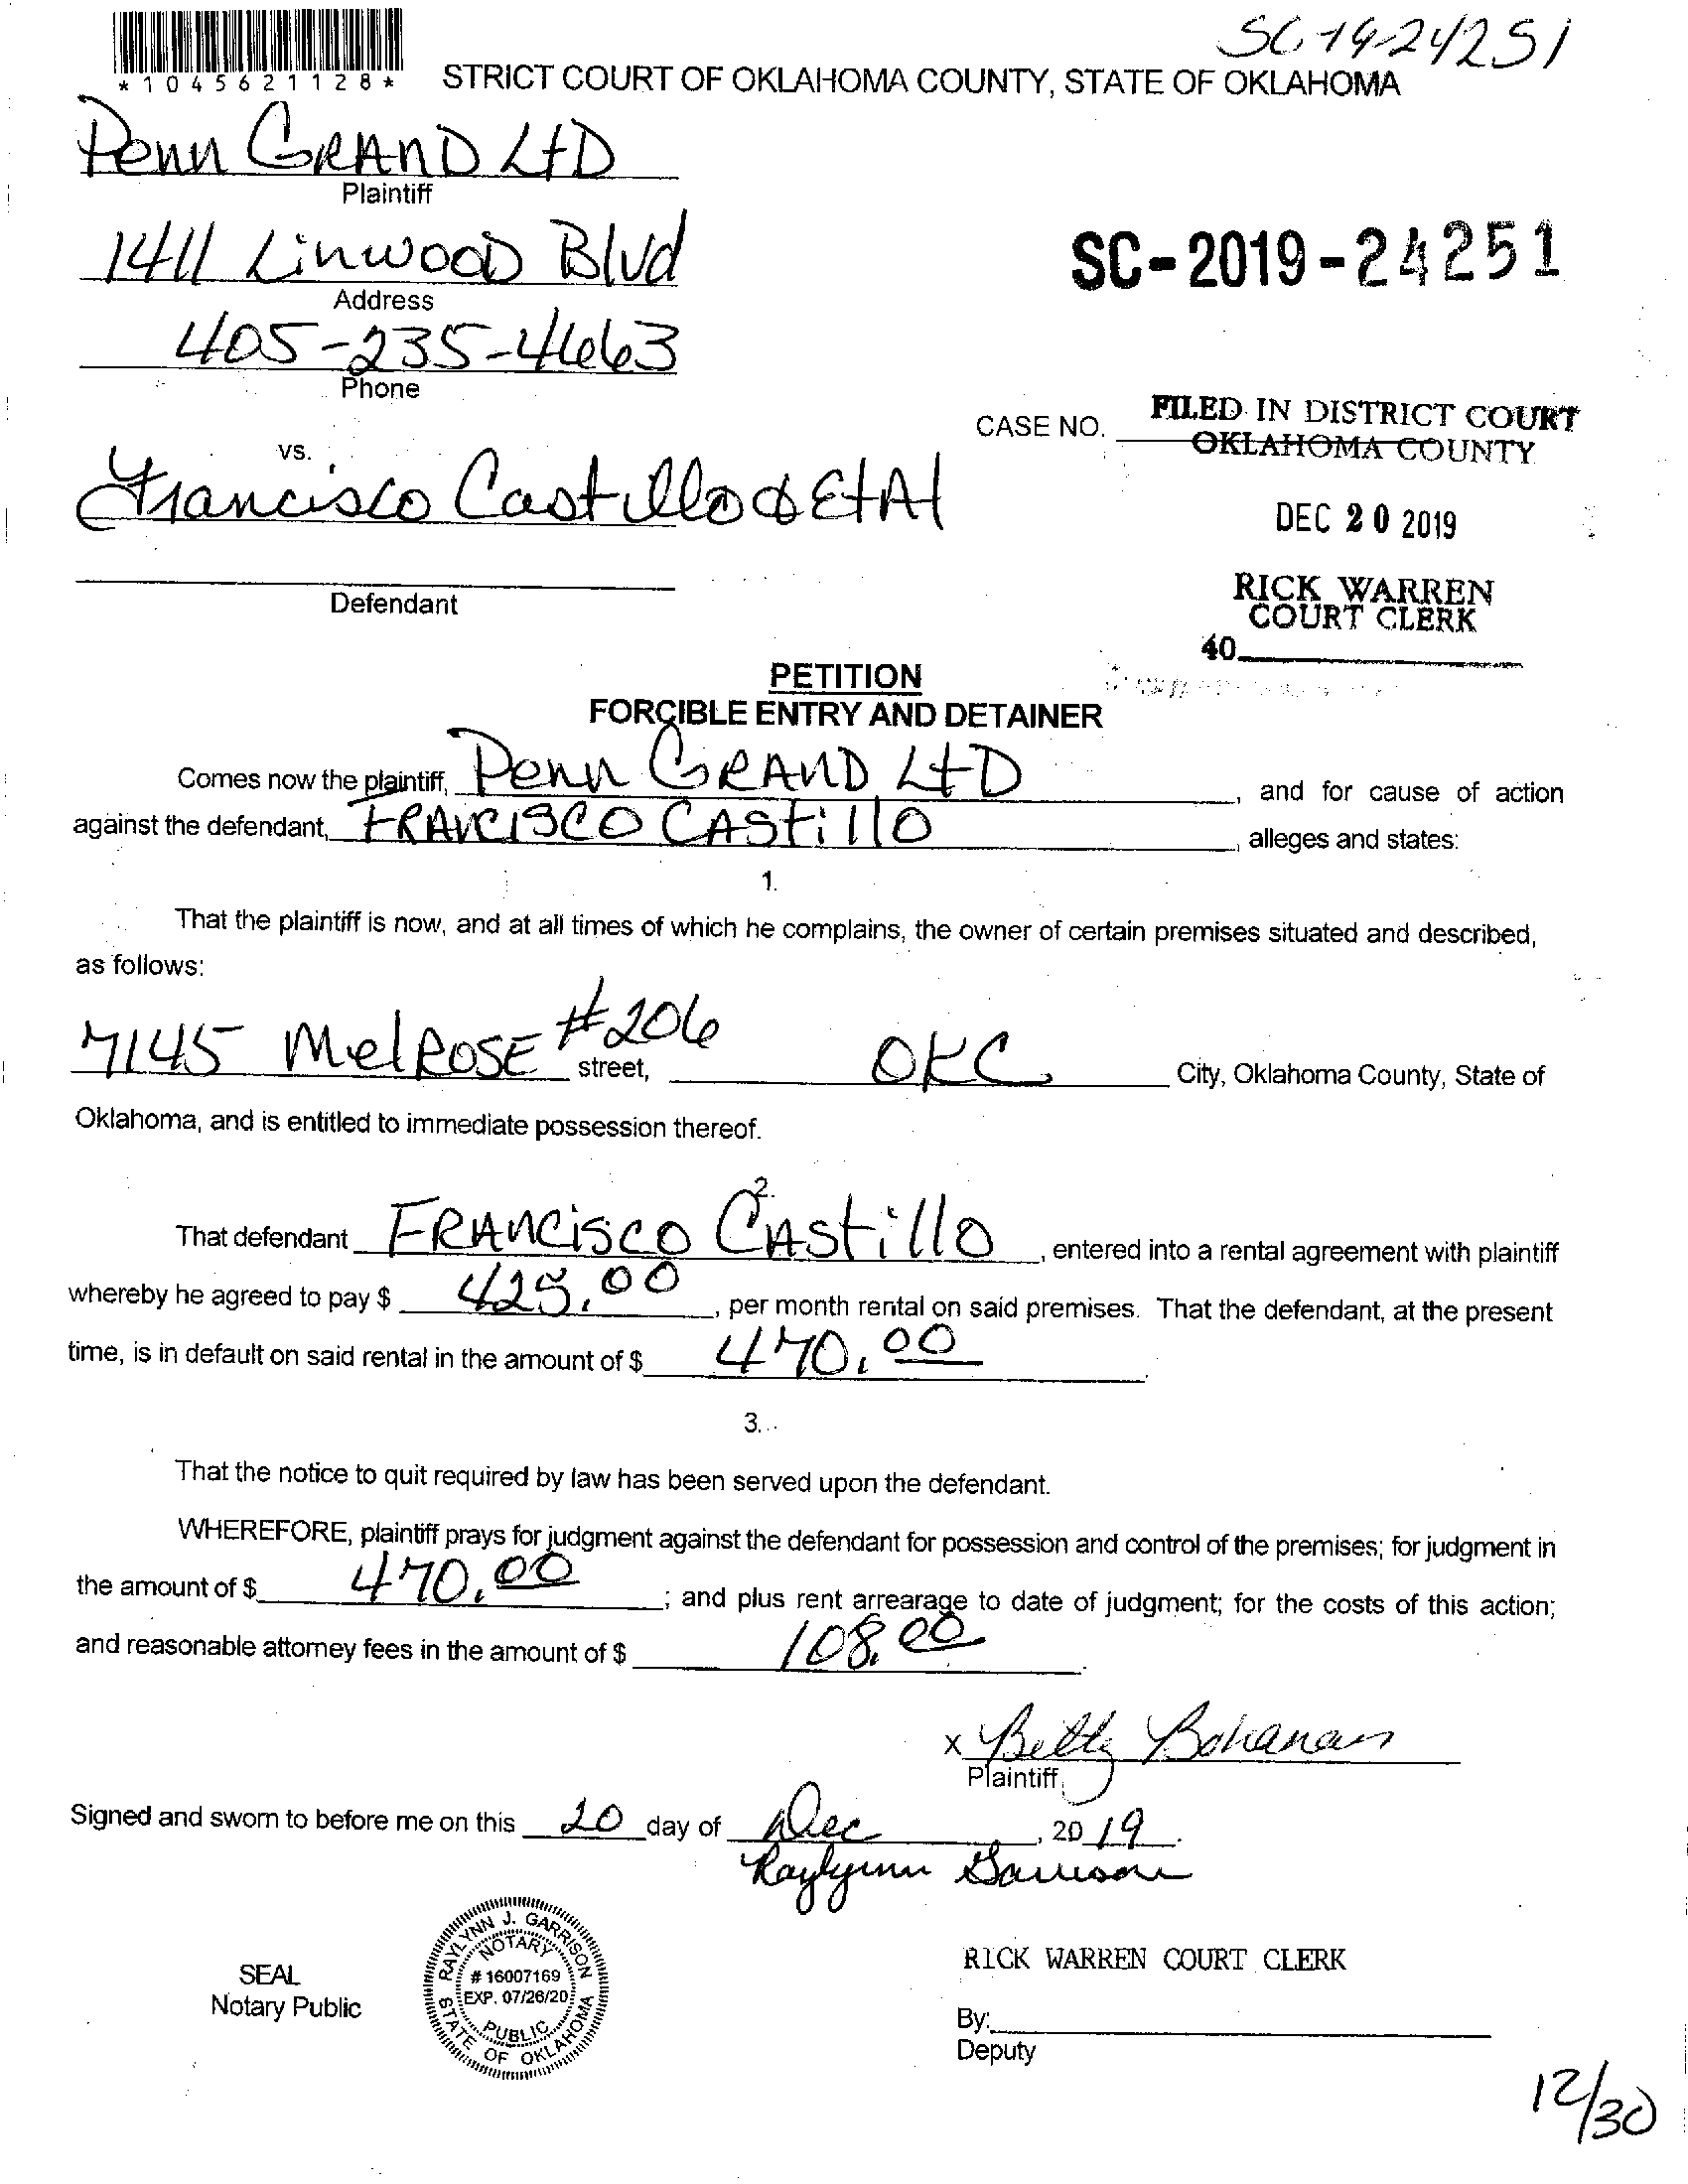 SC-19-24251
*1045621128*
STRICT COURT OF OKLAHOMA COUNTY, STATE OF OKLAHOMA
Penn GRAND LtD
Plaintiff
1411 Linwood Blvd
Address
SC-2019-24251
405-235-4663
Phone
CASE NO.
FILED IN DISTRICT COURT
OKLAHOMA COUNTY
vs.
Francisco Castillo & EtAl
DEC 20 2019
Defendant
RICK WARREN
COURT CLERK
40
PETITION
FORCIBLE ENTRY AND DETAINER
Comes now the plaintiff, Penn GRAND LtD, and for cause of action
against the defendant, FRANCISCO CAStillO, alleges and states:
1.
That the plaintiff is now, and at all times of which he complains, the owner of certain premises situated and described,
as follows:
7145 MelROSE #206 street, OKC City, Oklahoma County, State of
Oklahoma, and is entitled to immediate possession thereof.
2.
That defendant FRANCisCO CAStillO, entered into a rental agreement with plaintiff
whereby he agreed to pay $ 425.00, per month rental on said premises. That the defendant, at the present
time, is in default on said rental in the amount of $ 470.00
3.
That the notice to quit required by law has been served upon the defendant.
WHEREFORE, plaintiff prays for judgment against the defendant for possession and control of the premises; for judgment in
the amount of $ 470.00; and plus rent arrearage to date of judgment; for the costs of this action;
and reasonable attorney fees in the amount of $ 108.00
x Betty Bohanan
Plaintiff
Signed and sworn to before me on this 20 day of Dec, 2019.
Raylynn Garrison
SEAL
Notary Public
RAYLYNN J. GARRISON
NOTARY
# 16007169
EXP. 07/26/20
PUBLIC
STATE OF OKLAHOMA
RICK WARREN COURT CLERK
By:
Deputy
12/30